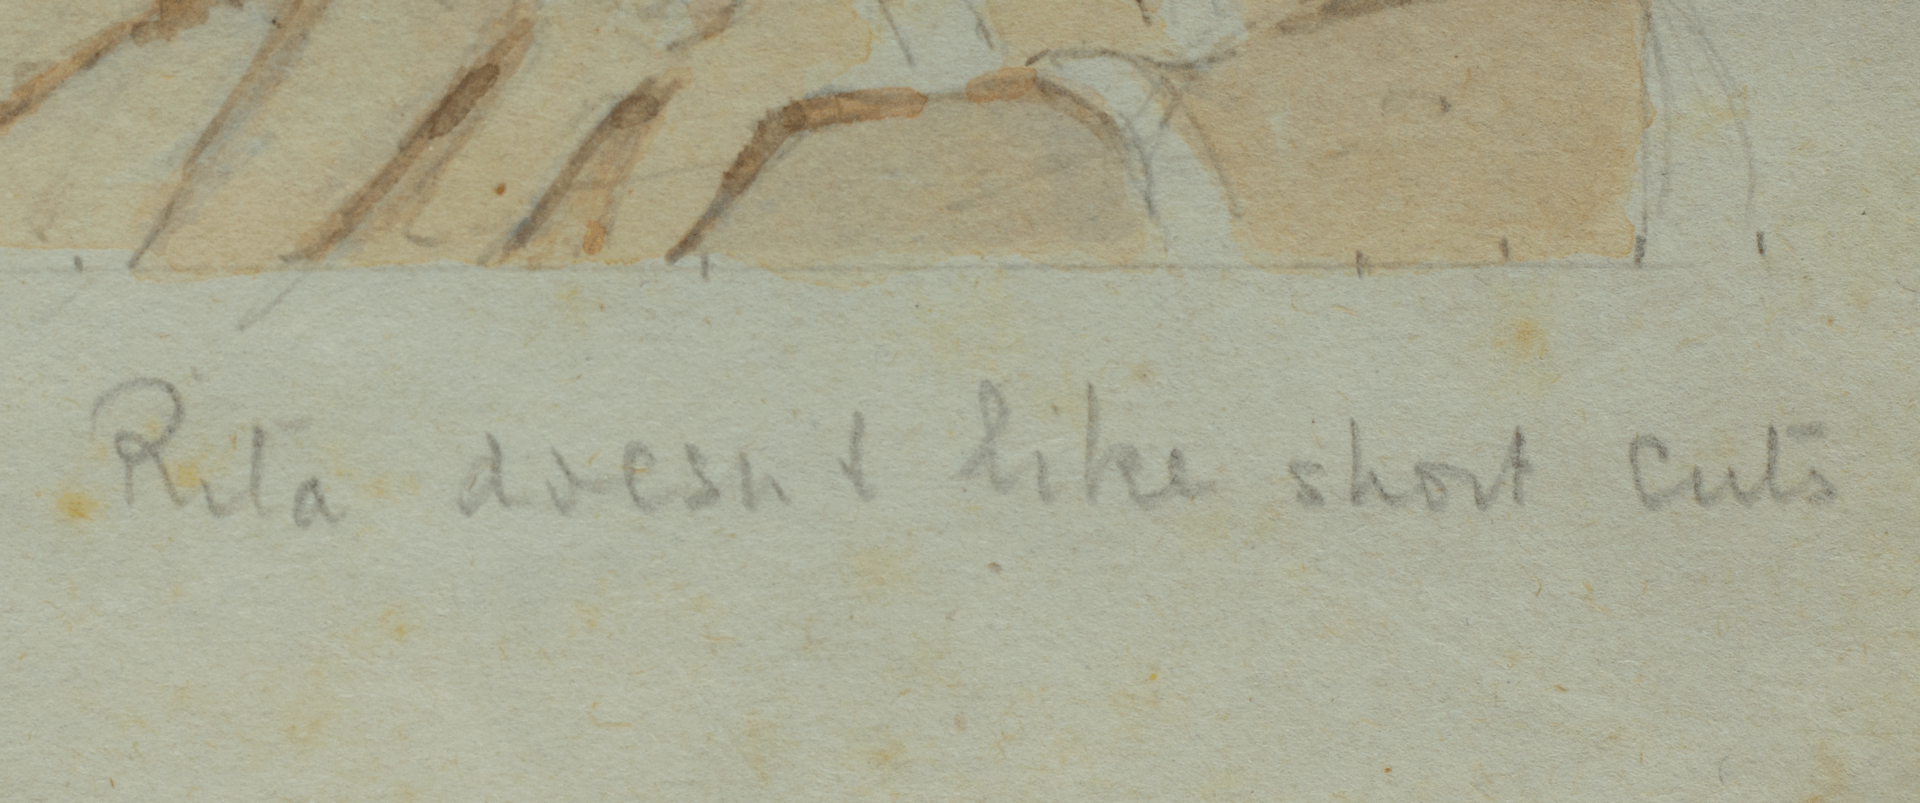 Rita doesn t like short cuts